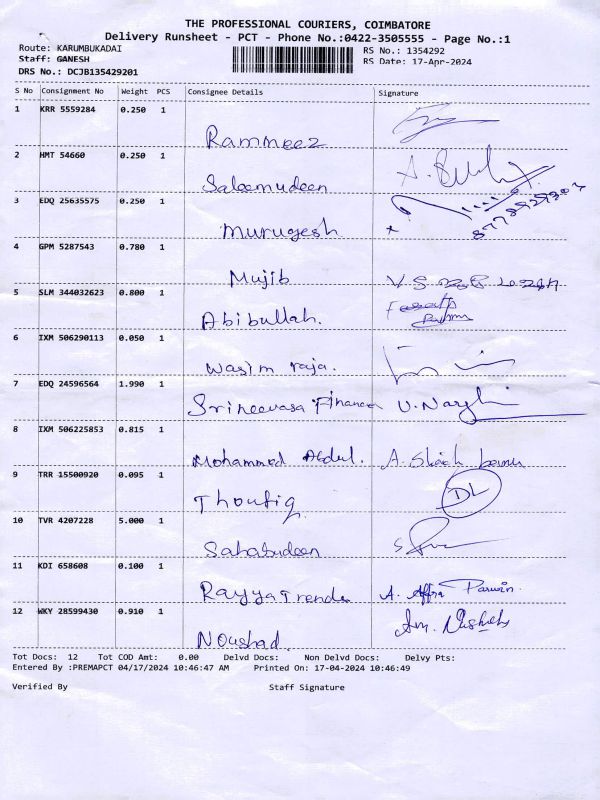 THE PROFESSIONAL COURIERS, COIMBATORE
Delivery Runsheet - PCT - Phone No.:0422-3505555 - Page No.:1
Route: KARUMBUKADAI RS No.: 1354292
Staff: GANESH RS Date: 17-Apr-2024
DRS No.: DCJB135429201
S No Consignment No Weight PCS Consignee Details Signature
1 KRR 5559284 0.250 1
Rammeez
2 HMT 54660 0.250 1
Saleemudeen
3 EDQ 25635575 0.250 1
Murugesh
4 GPM 5287543 0.780 1
Mujib
5 SLM 344032623 0.800 1
Abibullah.
6 IXM 506290113 0.050 1
Wasim raja.
7 EDQ 24596564 1.990 1
Srineevasa Finance
8 IXM 506225853 0.815 1
Mohammed Abdul.
9 TRR 15500920 0.095 1
Thoufiq DL
10 TVR 4207228 5.000 1
Sahabudeen
11 KDI 658608 0.100 1
Rayya Trends A. Affra Parwin.
12 WKY 28599430 0.910 1
Noushad.
Tot Docs: 12 Tot COD Amt: 0.00 Delvd Docs: Non Delvd Docs: Delvy Pts:
Entered By :PREMAPCT 04/17/2024 10:46:47 AM Printed On: 17-04-2024 10:46:49
Verified By Staff Signature